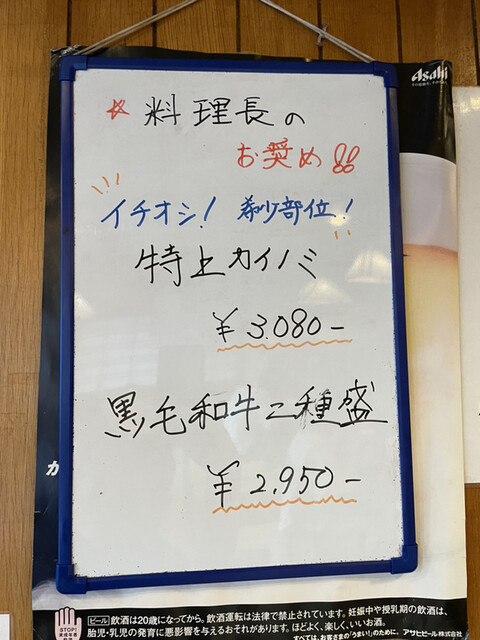 Asahi
☆料理長の
お奨め!!
イチオシ! 希少部位!
特上カイノミ
¥3.080-
黒毛和牛二種盛
¥2,950-
か
STOP!
ビール 飲酒は20歳になってから。飲酒運転は法律で禁止されています。妊娠中や授乳期の飲酒は、
胎児・乳児の発育に悪影響を与えるおそれがあります。ほどよく、楽しく、いいお酒。
すべては、お客さまの「うまい!」のために。 アサヒビール株式会社